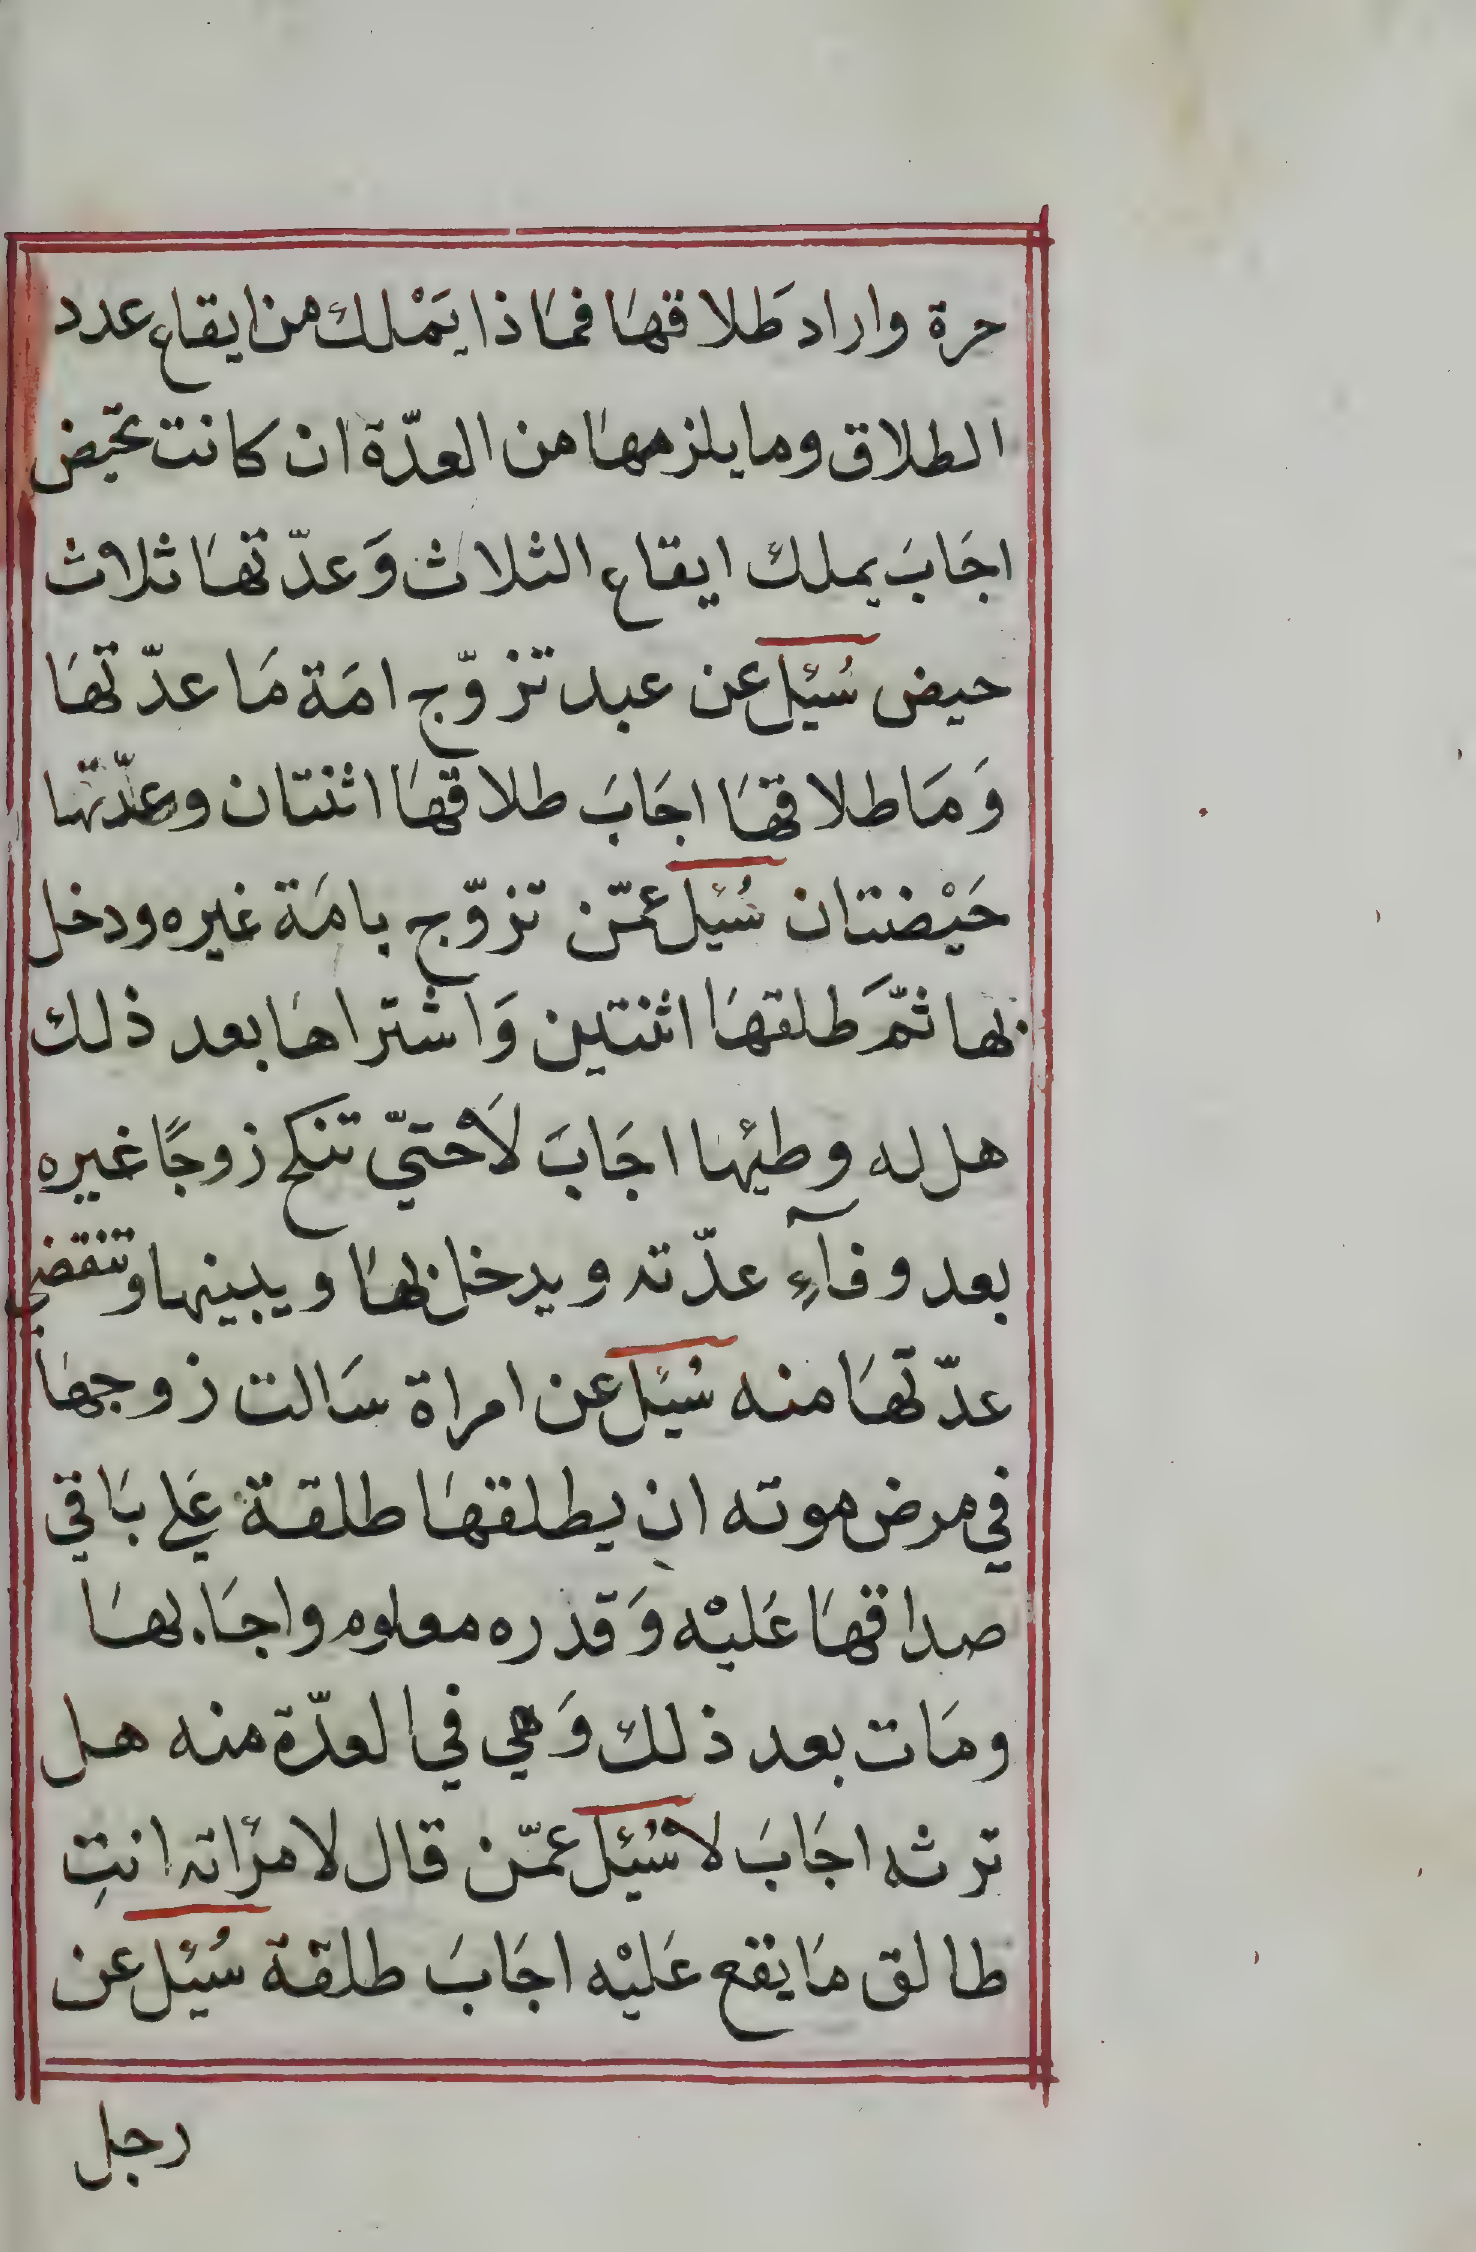 حرة واراد طَلاقهَا فمَاذا يَمْلك من ايقاع عدد
الطلاق وما يلزمهَا من العدّة ان كانت تحيض
اجَابَ يملك ايقاع الثلاث وَعدّتهَا ثلاث
حيض سُئِل عن عبد تزوّج امَة مَا عدّتهَا
وَمَا طلاقهَا اجَابَ طلاقهَا اثنتان وعدّتها
حَيْضتان سُئِل عمّن تزوّج بامَة غيره ودخل
بها ثمَّ طلقهَا اثنتين وَاشتراها بعد ذلك
هل له وطيئها اجَابَ لاَ حتيّ تنكح زوجًا غيره
بعد وفآءِ عدّته ويدخل بهَا ويبينها وتنقضي
عدّتهَا منه سُئِل عن امراة سَالت زوجهَا
في مرض موته ان يطلقهَا طلقة عَلي بَاقي
صداقهَا عَليْه وَقدره معلوم واجَابهَا
ومَات بعد ذلك وَهي في العدّة منه هل
ترثه اجَابَ لاَ سُئِل عمّن قال لامرَأته انتِ
طالق مَا يقع عَليْه اجَابَ طلقة سُئِل عن
رجل